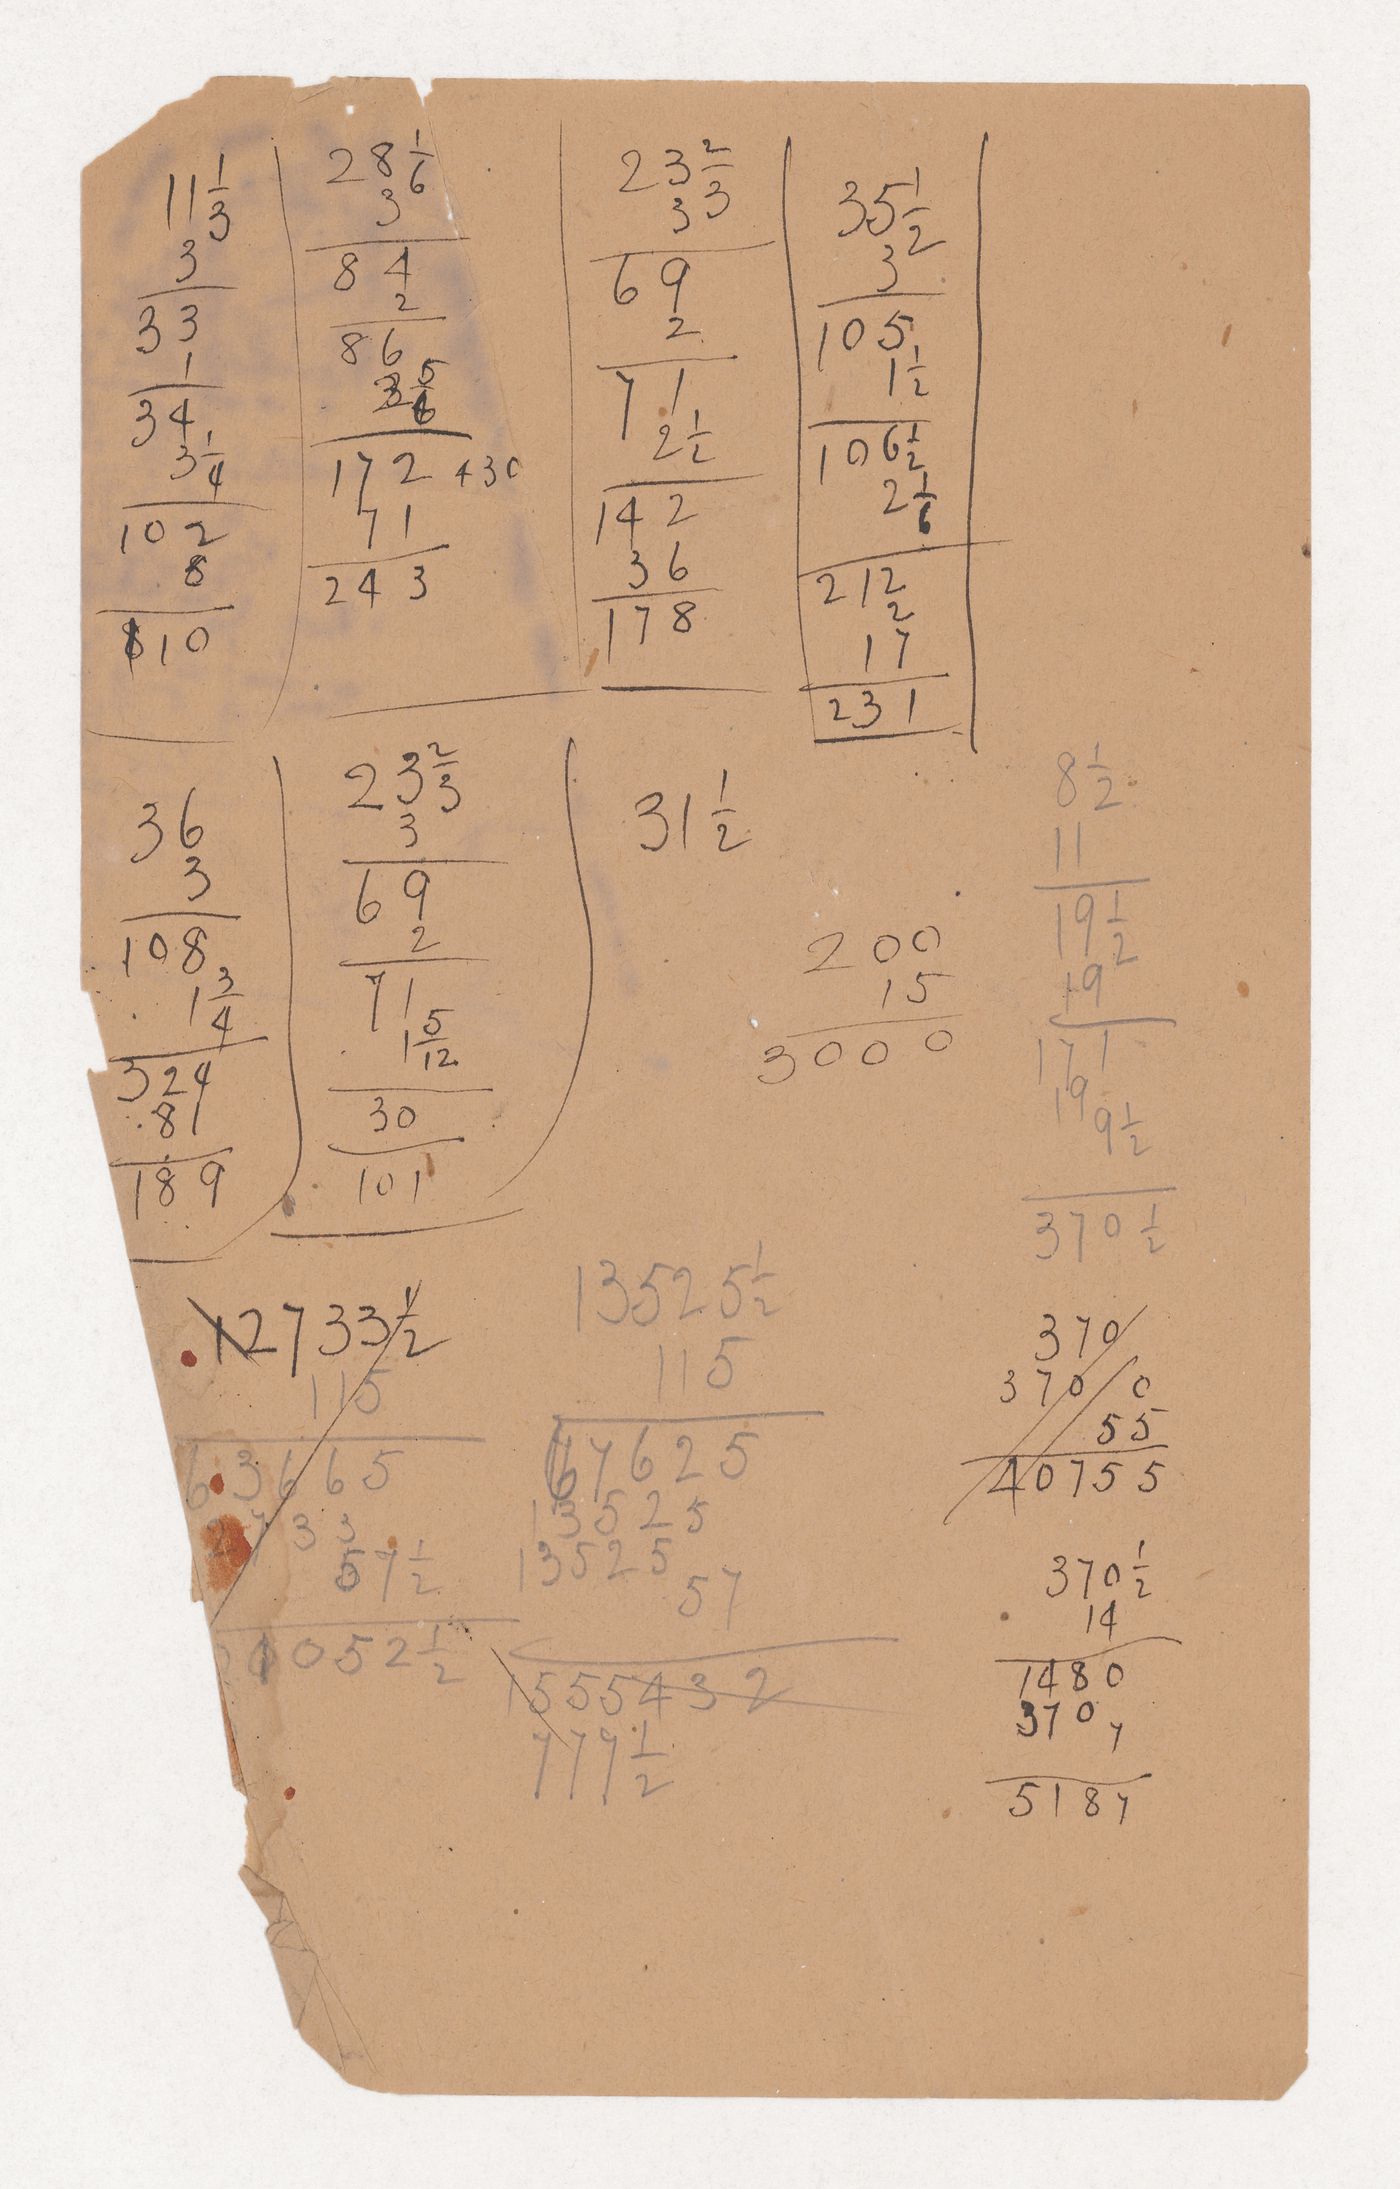 11 1/3
3
33
1
34
3 1/4
102
8
110
28 1/6
3
84
2
86
172 +30
71
243
23 2/3
3
69
2
71
2 1/2
142
36
178
35 1/2
3
105
1 1/2
106 1/2
2 1/6
212
2
17
231
36
3
108
1 3/4
324
81
189
23 2/3
3
69
2
71
1 5/12
30
101
31 1/2
200
15
3000
8 1/2
11
19 1/2
19
171
19
9 1/2
370 1/2
12733 1/2
115
63665
2733
57 1/2
052 1/2
13525 1/2
115
67625
13525
13525
57
1555432
779 1/2
370
370 0
55
40755
370 1/2
14
1480
370 7
5187